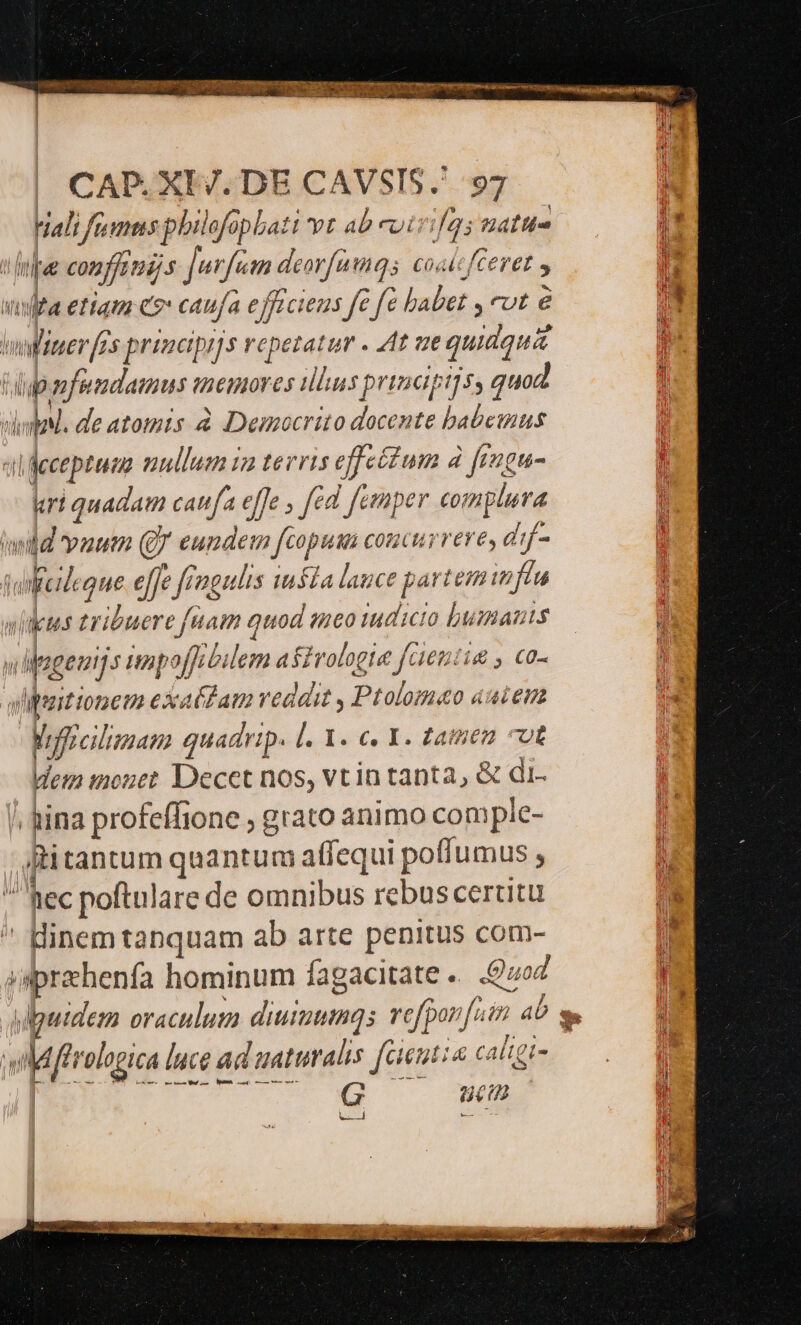 CAP. XIV. DE CAVSIS. 97
riali sumus philosophati vt ab vtrisq; natu-
confinijs sursum deorsumq; coalesceret,
etiam & causa efficiens se se habet, vt è
principijs repetatur. At ne quidquā
memores illius principijs, quod
de atomis à Democrito docente habemus
acceptum nullum in terris effectum à singu-
lari quadam causa esse, sed semper complura
ad vnum & eundem scopum concurrere, dif-
ficileque esse singulis iusta lance partem influ
xus tribuere suam quod meo iudicio humanis
ingenijs impossibilem astrologiæ scientiæ, co-
gnitionem exactam reddit, Ptolomæo autem
difficilimam quadrip. l. 1. c. 1. tamen vt
idem monet Decet nos, vt in tanta, & di-
uina professione, grato animo comple-
cti tantum quantum assequi possumus,
nec postulare de omnibus rebus certitu
dinem tanquam ab arte penitus com-
præhensa hominum sagacitate. Quod
quidem oraculum diuinumq; responsum ab
Astrologica luce ad naturalis scientiæ caligi-
G nem